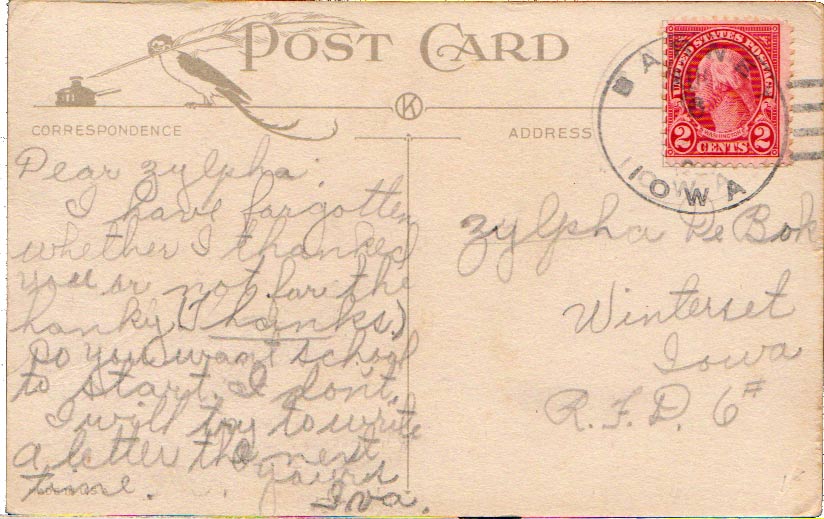 POST CARD
CORRESPONDENCE
ADDRESS
UNITED STATES POSTAGE
WASHINGTON
2 CENTS 2
IOWA
K
Dear Zylpha:
I have forgotten
whether I thanked
you or not for the
hanky (Thanks.)
Do you want school
to start, I don't.
I will try to write
a letter the next
time. yours
Iva.
Zylpha De Bok
Winterset
Iowa
R.F.D. 6#